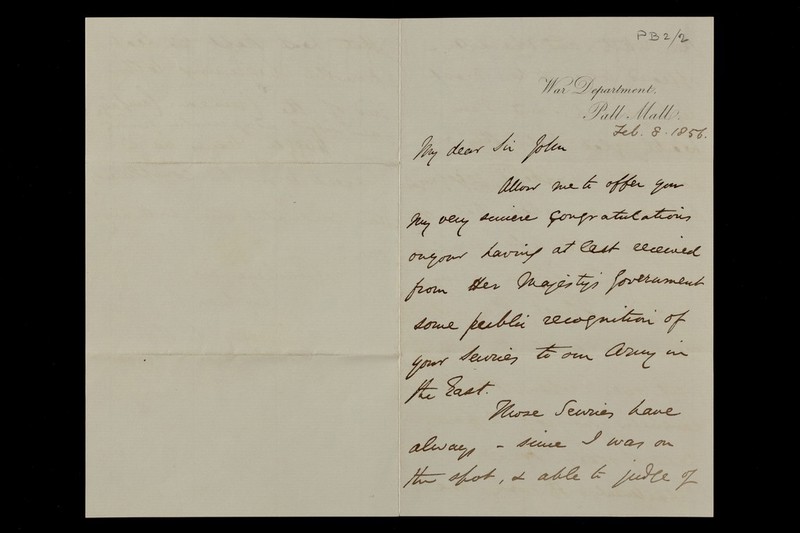 PB2/2
War Department,
Pall Mall.
Feb. 8. 1856.
My dear Sir John
Allow me to offer you
my very sincere Congratulations
on your having at last received
from Her Majesty's Government
some public recognition of
your Services to our Army in
the East.
Those Services have
always – since I was on
the spot, & able to judge of